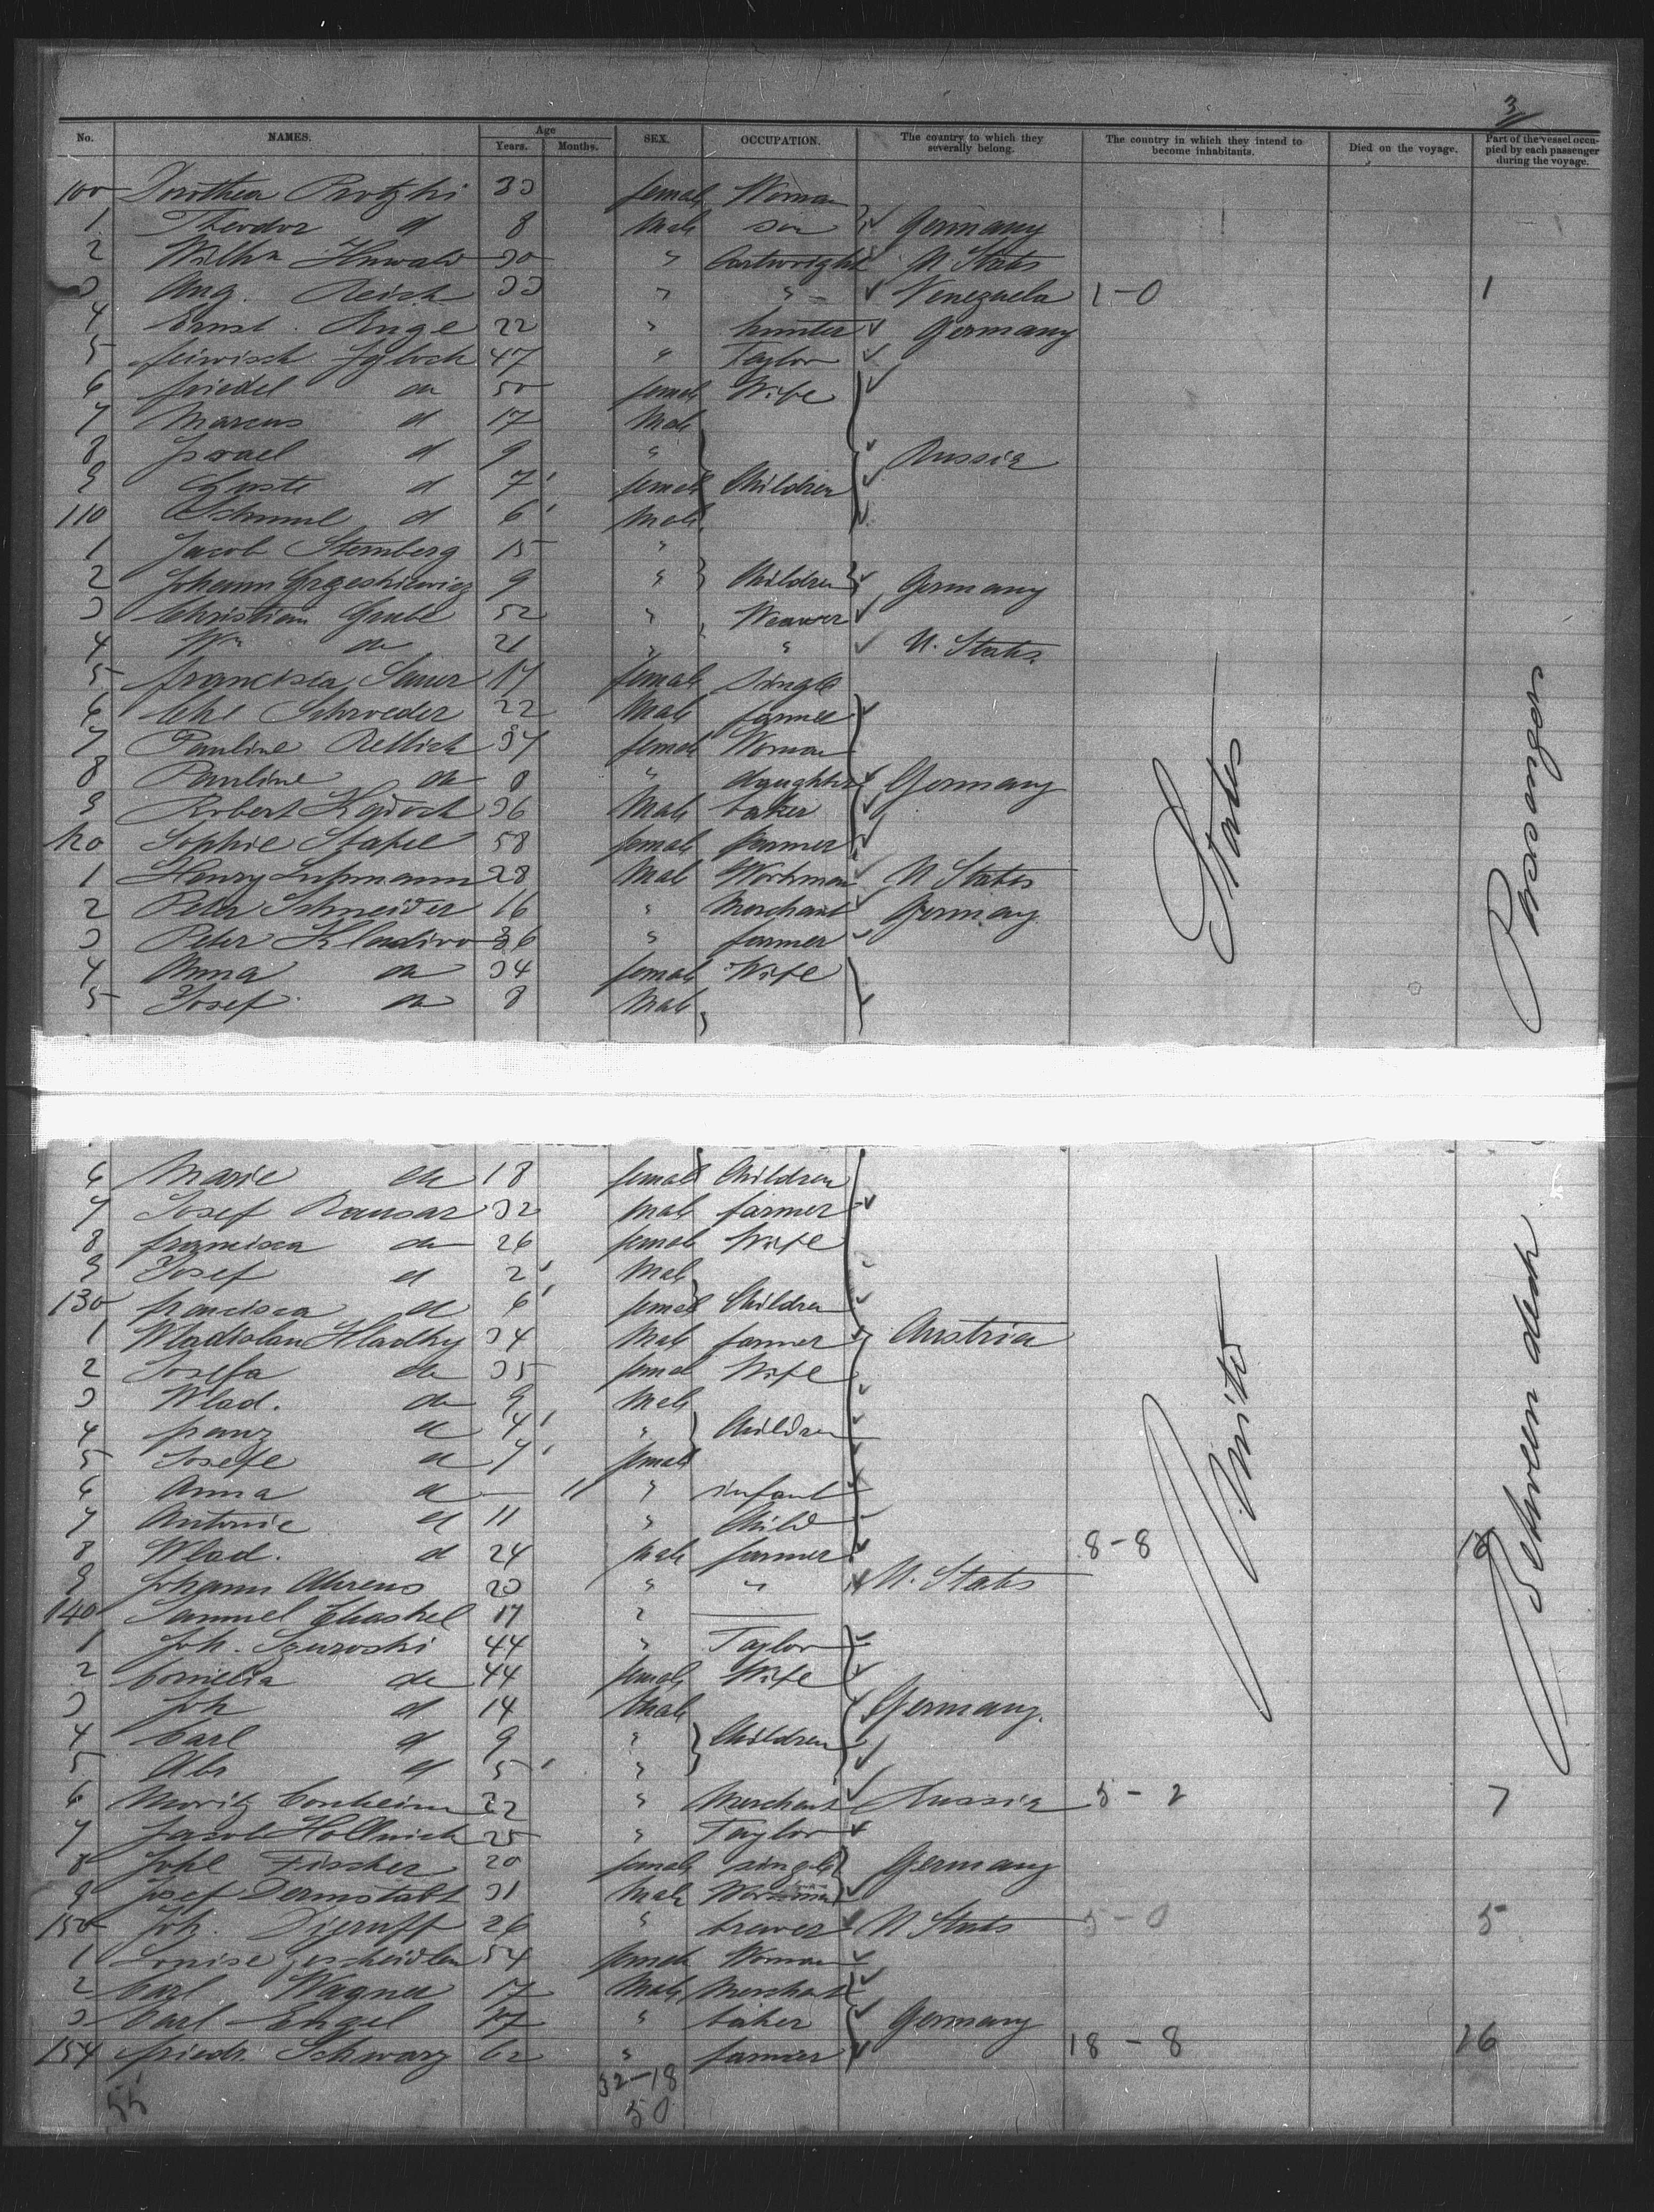 3
No. NAMES. Age Years. Months. SEX. OCCUPATION. The country to which they severally belong. The country in which they intend to become inhabitants. Died on the voyage. Part of the vessel occupied by each passenger during the voyage.
100 Dorothea 33 female Woman
1 Theodor d 8 Male son Germany
2 Wilhm 30 " Cartwright U. States
3 Aug. Reich 33 " " Venezuela 1-0 1
4 Ernst Runge 22 " hunter Germany
5 47 " Taylor
6 friedel do 50 female Wife
7 Marcus d 17 Male
8 Israel d 9 " Russia
9 Guste d 7' female Children
110 Schmul d 6' Male
1 Jacob Sternberg 15 "
2 Johann Grzeskiewicz 9 " Children Germany
3 Christian Grube 52 " Weaver
4 Wm do 21 " " U. States
5 francisca 17 female Single
6 Schroeder 22 Male farmer
7 Pauline Rellich 37 female Woman
8 Pauline do 8 " daughter Germany
9 Robert 36 Male baker
120 Sophie Stapel 58 female farmer
1 Henry Luhmann 28 Male Workman U States
2 Peter Schneider 16 " Merchant Germany
3 Peter Kladivo 36 " farmer
4 Anna do 34 female Wife
5 Josef do 8 Male
6 Marie do 18 female Children
7 Josef Rausar 32 Male farmer
8 francisca do 26 female Wife
9 Josef d 2' Male
130 francisca d 6' female Children
1 Wladislav Hladky 34 Male farmer Austria
2 Josefa do 35 female Wife
3 Wlad. do 9 Male
4 franz d 4' " Children
5 Josefe d 7' female
6 Anna d — 11 " infant
7 Antonie d 11 " Child
8 Wlad. d 24 Male farmer 8-8 16
9 Johann Ahrens 23 " " U. States
140 Samuel Chaskel 17 "
1 Joh. 44 " Taylor
2 Cornelia do 44 female Wife
3 Joh d 14 Male Germany.
4 Carl d 9 " Children
5 d 5' "
6 Moritz Conheim 22 " Merchant Russia 5-2 7
7 Jacob Hollnick 25 " Taylor
8 Fischer 20 female single Germany
9 Josef Dermstadt 31 Male Workman
150 Joh. Dieruff 26 " brewer U States 5-0 5
1 Louise 54 female Woman
2 Carl Wagner 17 Male Merchant
3 Carl Engel 17 " baker Germany
154 friedr. Schwarz 62 " farmer 18-8 26
55 32-18
50
United States
Between deck Passengers